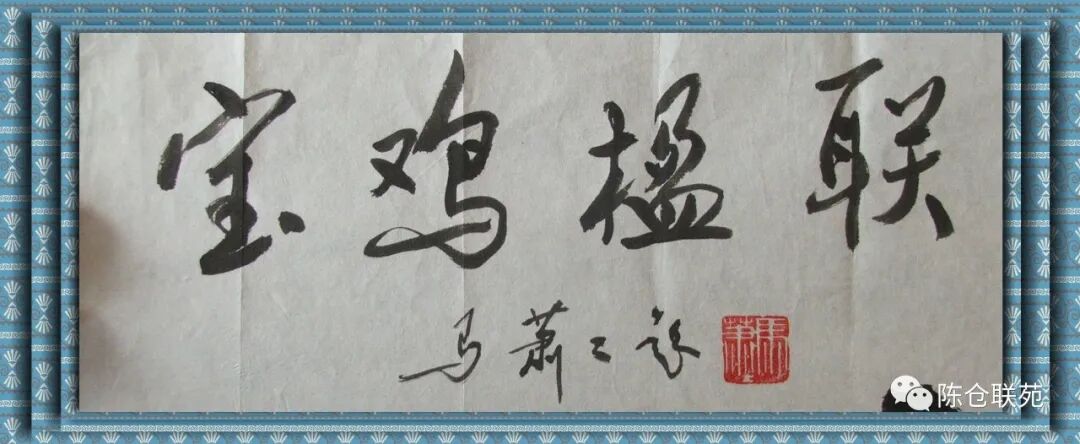 宝鸡楹联
马萧萧题
陈仓联苑